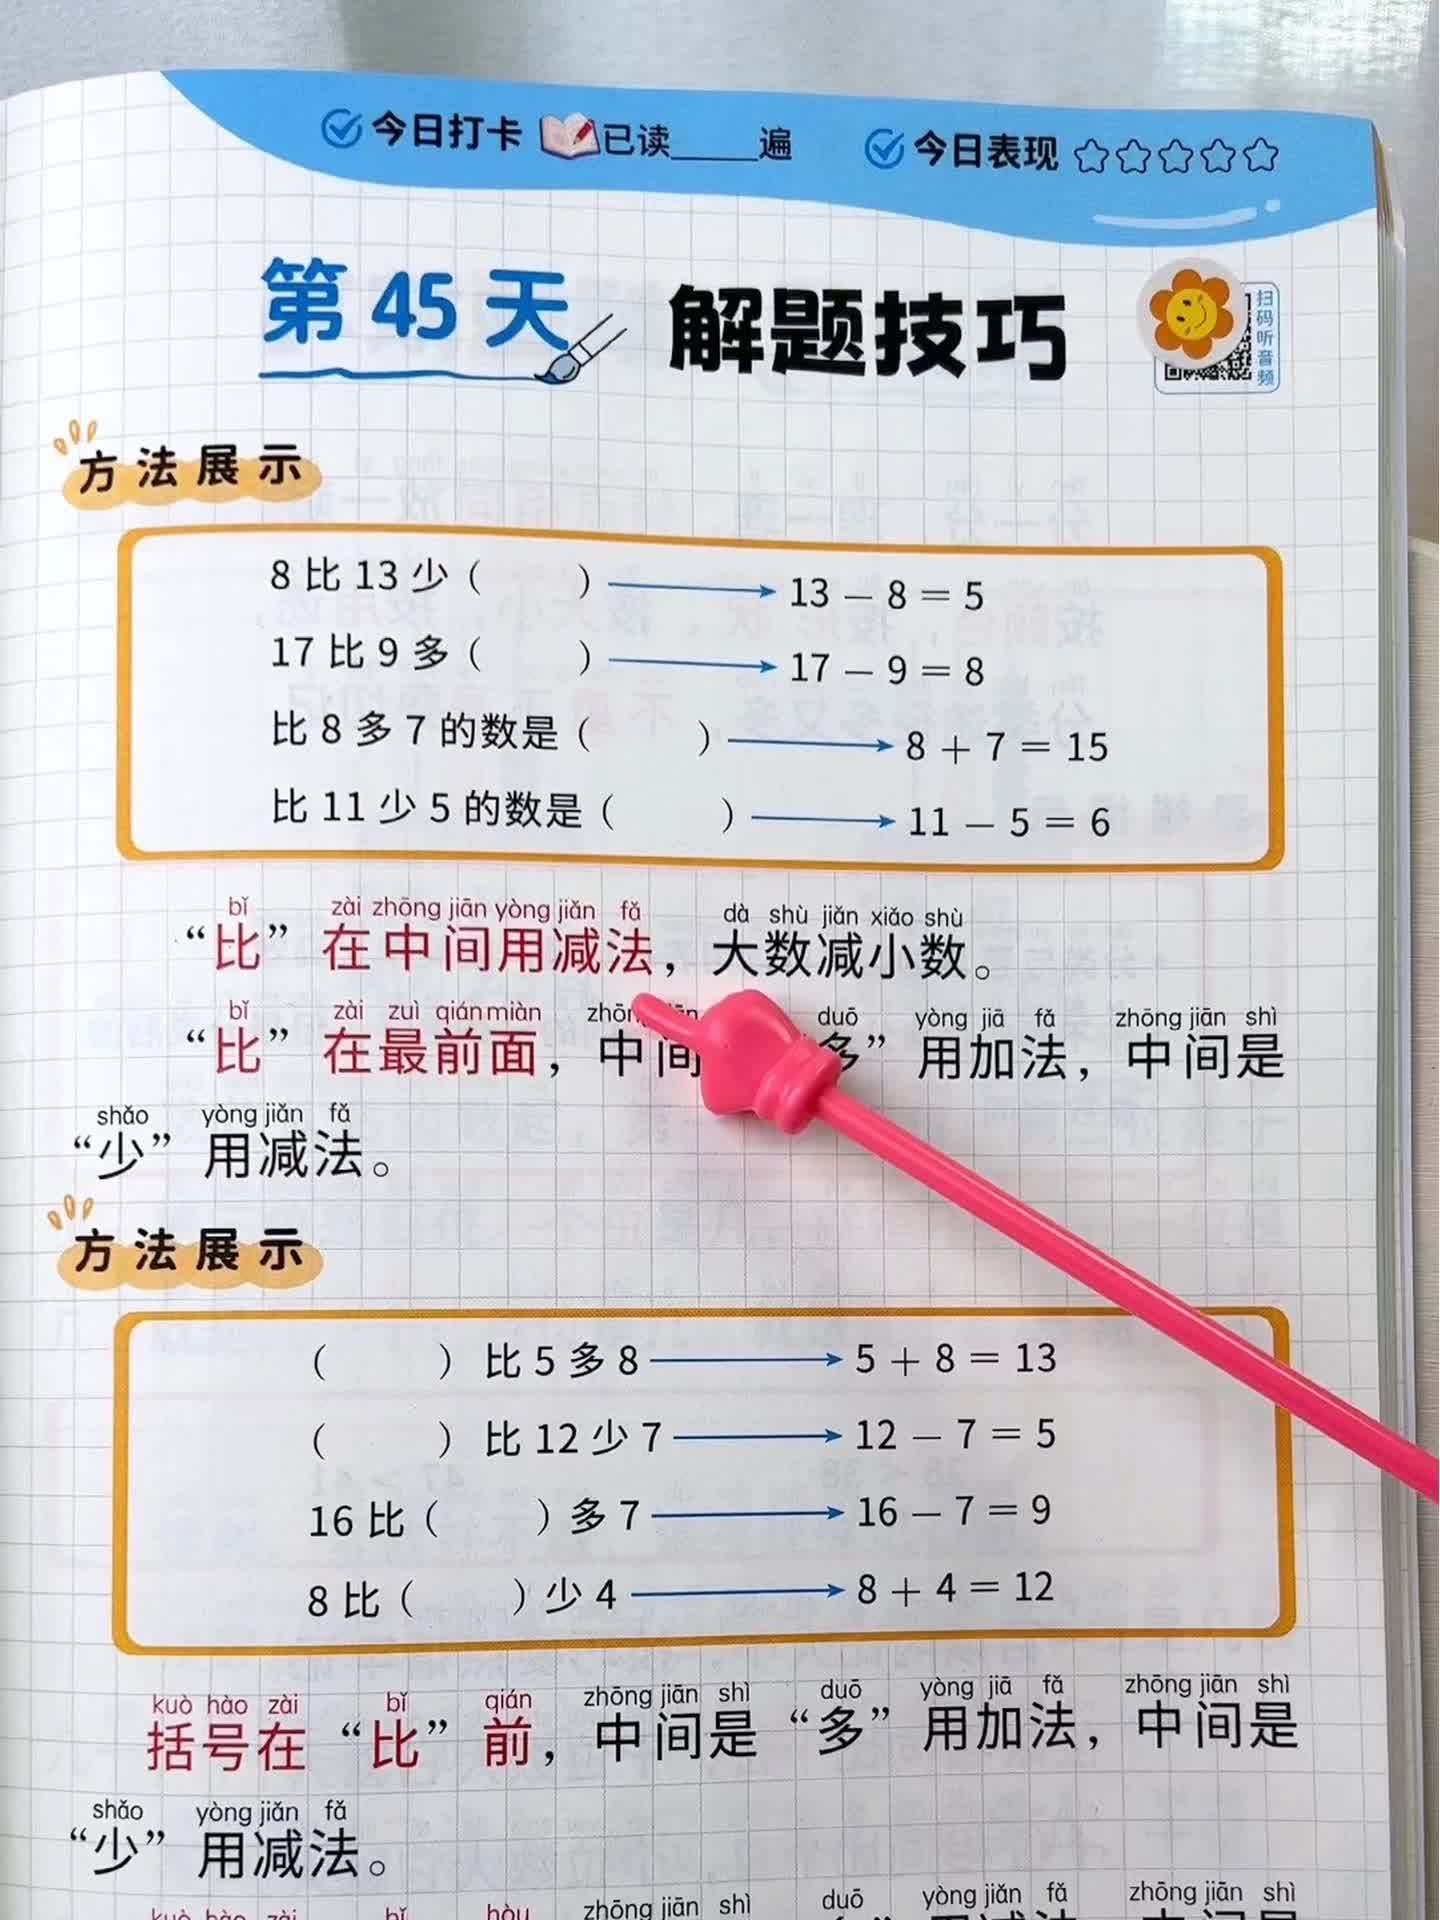 今日打卡 已读_____遍 今日表现
第45天 解题技巧
扫码听音频
方法展示
8比13少（　　）→13－8＝5
17比9多（　　）→17－9＝8
比8多7的数是（　　）→8＋7＝15
比11少5的数是（　　）→11－5＝6
bǐ zài zhōng jiān yòng jiǎn fǎ dà shù jiǎn xiǎo shù
“比”在中间用减法，大数减小数。
bǐ zài zuì qián miàn duō yòng jiā fǎ zhōng jiān shì
“比”在最前面，中间多”用加法，中间是
shǎo yòng jiǎn fǎ
“少”用减法。
方法展示
（　　）比5多8→5＋8＝13
（　　）比12少7→12－7＝5
16比（　　）多7→16－7＝9
8比（　　）少4→8＋4＝12
kuò hào zài bǐ qián zhōng jiān shì duō yòng jiā fǎ zhōng jiān shì
括号在“比”前，中间是“多”用加法，中间是
shǎo yòng jiǎn fǎ
“少”用减法。
kuò hào zài bǐ hòu zhōng jiān shì duō yòng jiǎn fǎ zhōng jiān shì